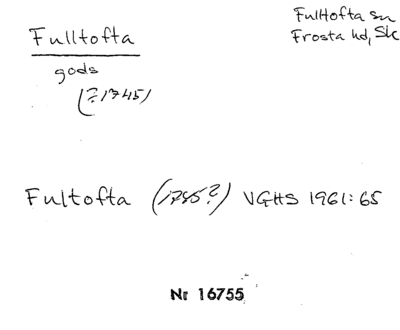 Fulltofta
gods
(?1745)
Fulltofta sn
Frosta hd, Sk
Fultofta (1785?) VGHS 1961:65
Nr 16755